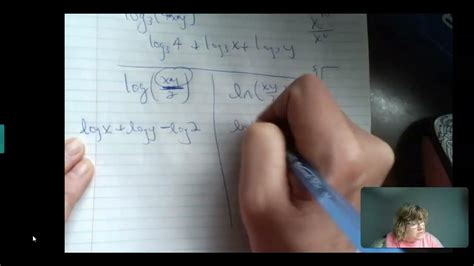 log₃(4xy)
log₃4 + log₃x + log₃y
log(xy/2)
ln(xy
logx + logy - log2
ln